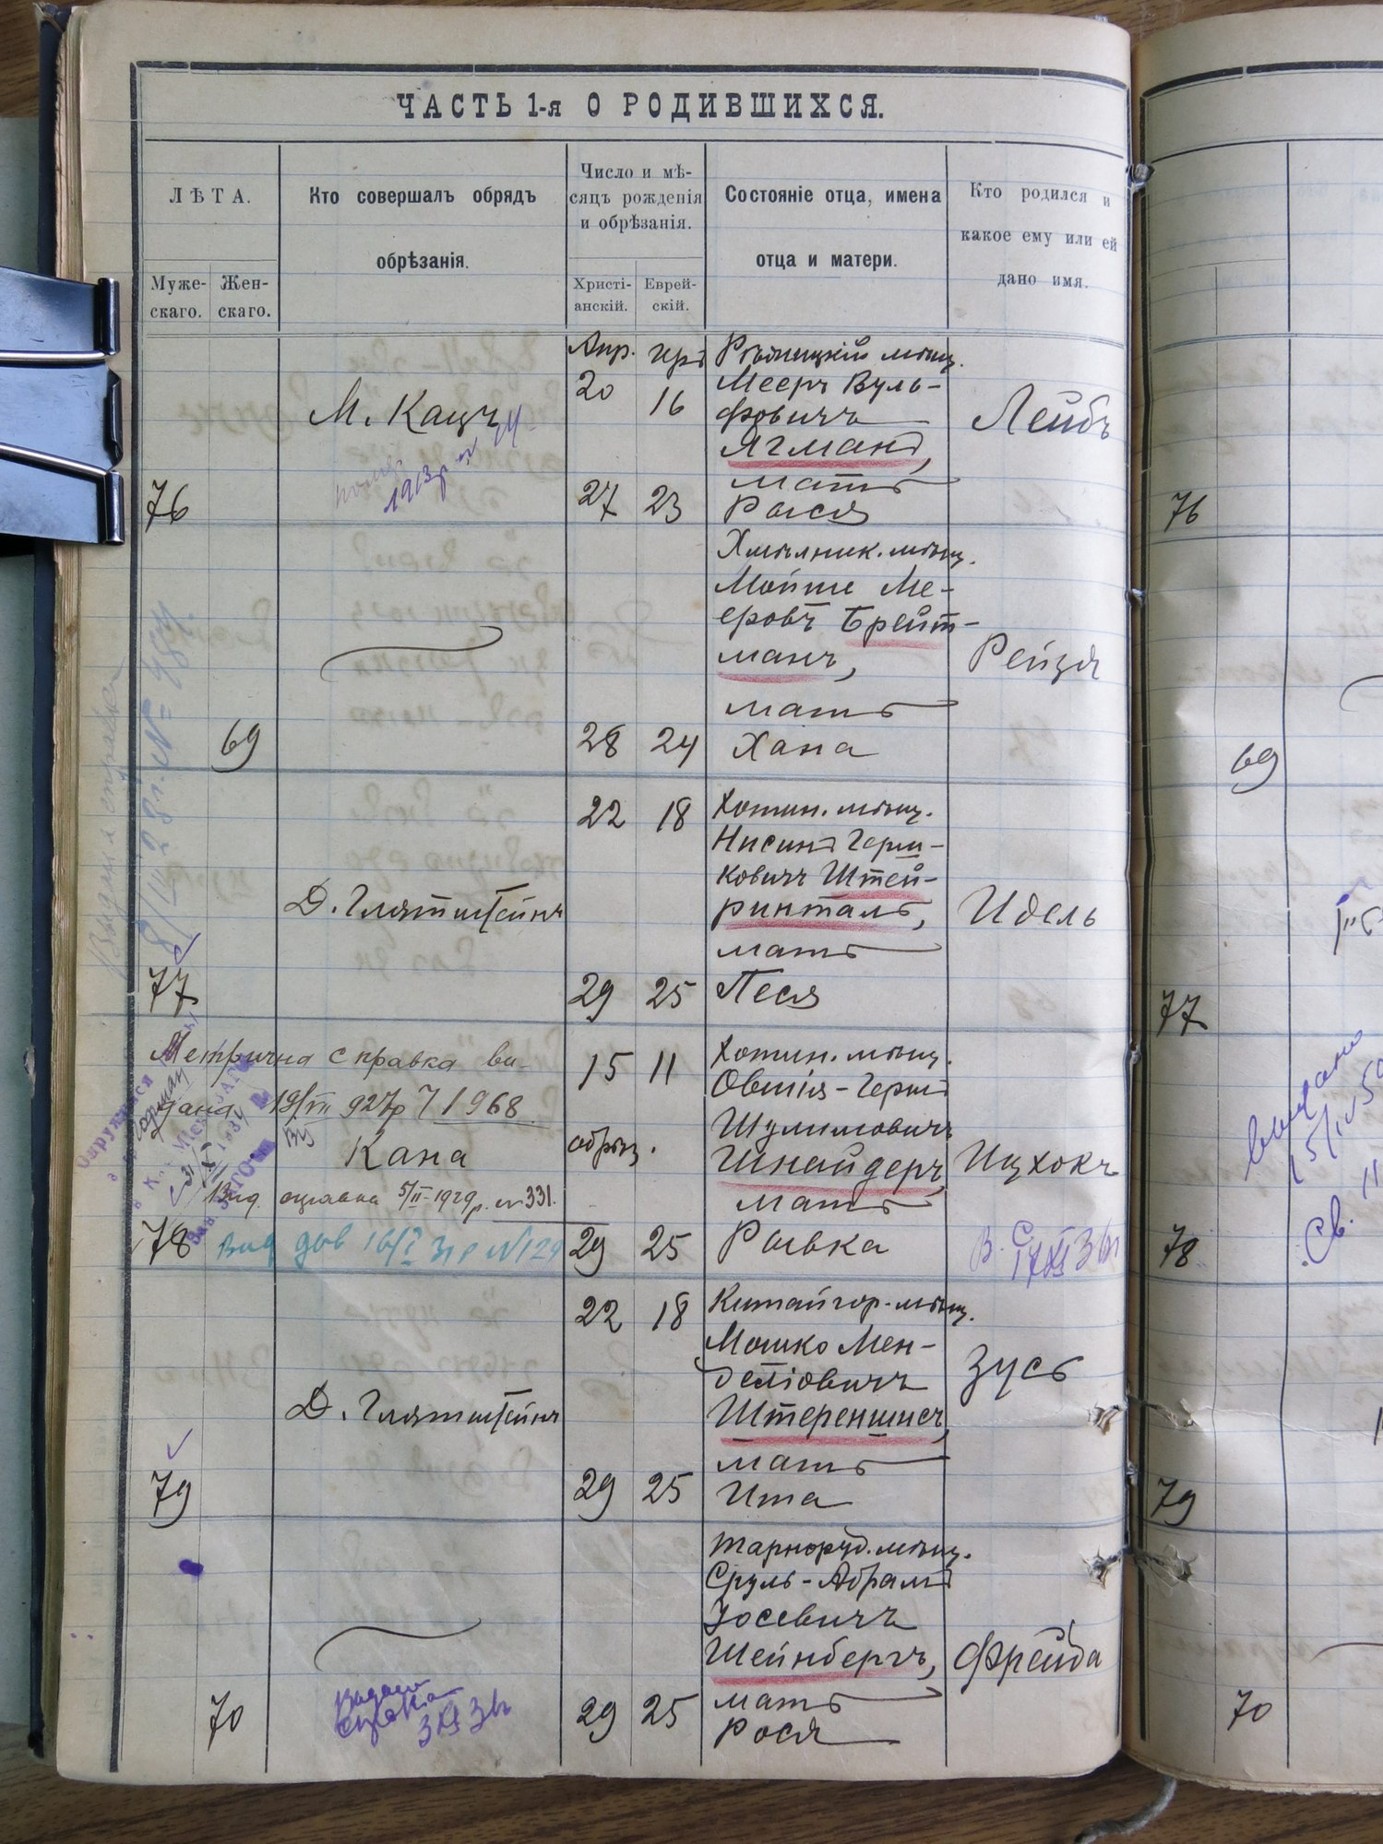 ЧАСТЬ 1-я О РОДИВШИХСЯ.
ЛѢТА.
Муже-
скаго.
Жен-
скаго.
Кто совершалъ обрядъ
обрѣзанія.
Число и мѣ-
сяцъ рожденія
и обрѣзанія.
Христі-
анскій.
Еврей-
скій.
Состояніе отца, имена
отца и матери.
Кто родился и
какое ему или ей
дано имя.
76
М. Кацъ
1913 р
Апр.
20
16
27 23
мѣщ.
Мееръ Вуль-
фовичъ
Ягманъ,
мать
Рыся
Лейбъ
69
28 24
Хмѣльник. мѣщ.
Мойше Ме-
еровъ Брейт-
манъ,
мать
Хана
Рейзя
77
Д. Глятштейнъ
22 18
29 25
Хотин. мѣщ.
Нисинъ Герш-
ковичъ Штей-
ринталь,
мать
Песя
Идель
Метрична справка ви-
дана 19/VII 927р 7/968
Кана
справка 5/II-1929р. №331.
78
15 11
обрѣз.
29 25
Хотин. мѣщ.
Овшія-Герш
Шулимовичъ
Шнайдеръ,
мать
Рывка
Ицхокъ
79
Д. Глятштейнъ
22 18
29 25
Китайгор. мѣщ.
Мошко Мен-
делiовичъ
Штереншисъ,
мать
Ита
Зусь
70
29 25
Тарноруд. мѣщ.
Сруль-Абрамъ
Іосевичъ
Шейнбергъ,
мать
Рося
Фрейда
76
69
77
78
79
70